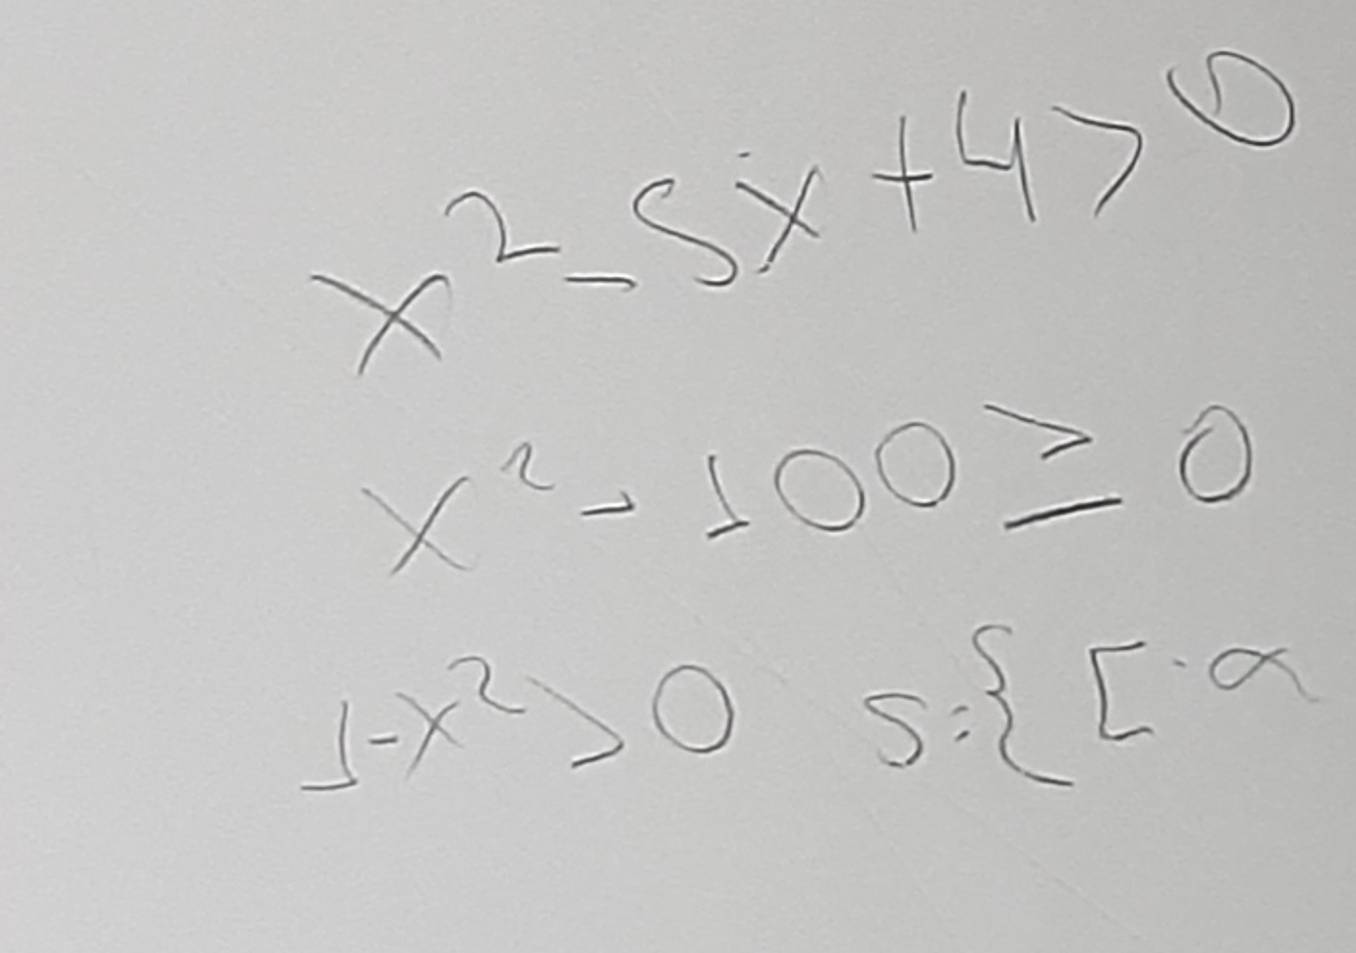 x² - 5x + 4 > 0
x² - 100 ≥ 0
1 - x² > 0 S:{ [-∝